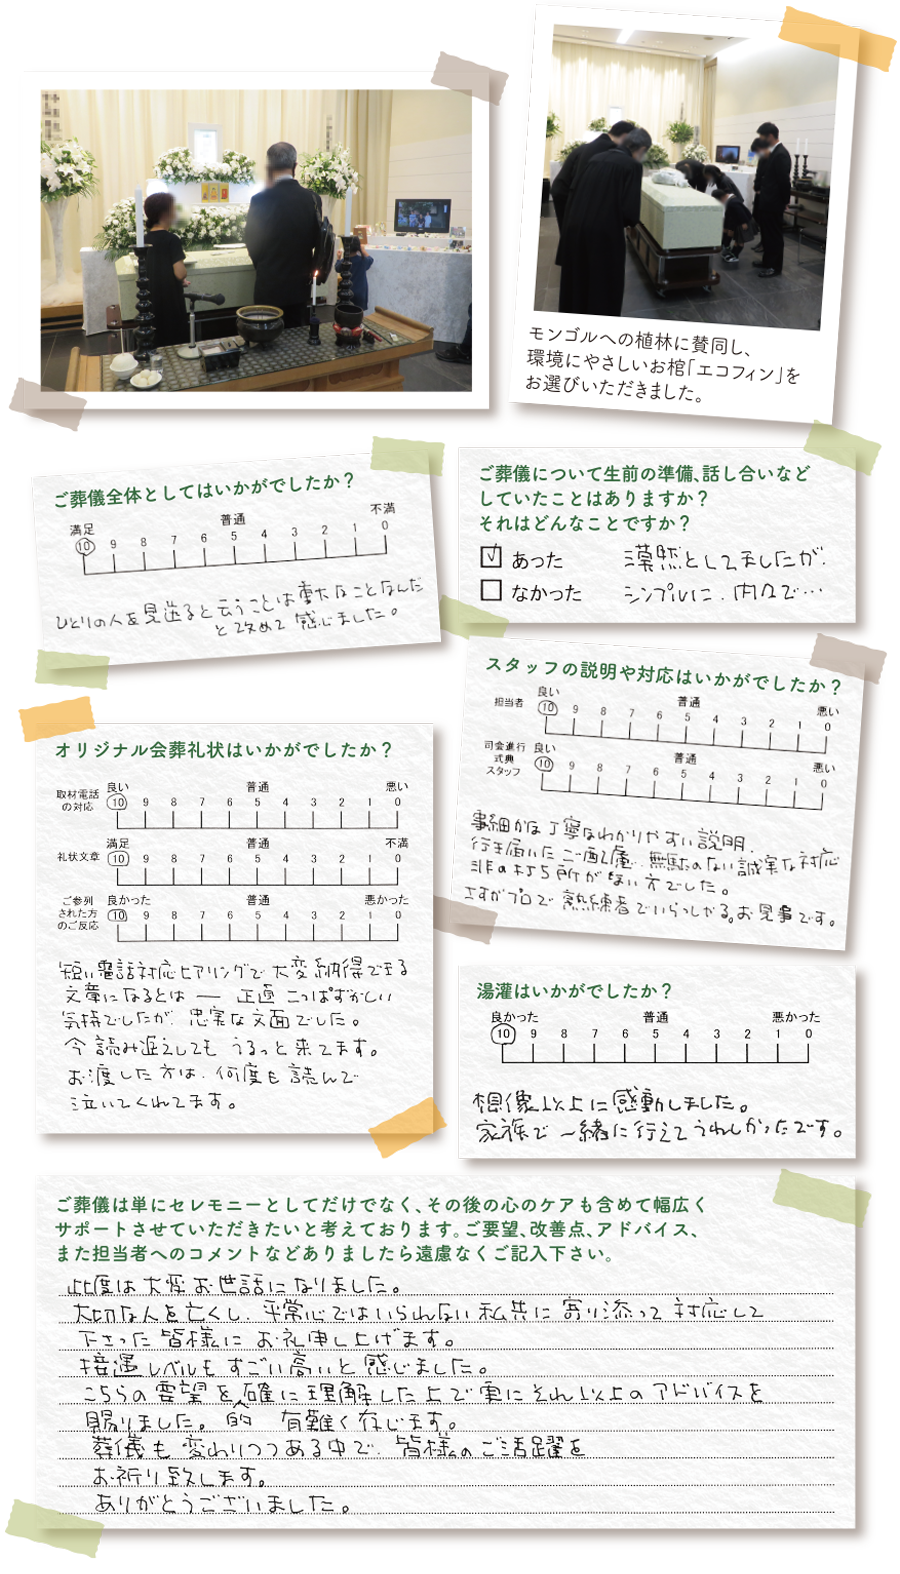 モンゴルへの植林に賛同し、
環境にやさしいお棺「エコフィン」を
お選びいただきました。
ご葬儀全体としてはいかがでしたか？
満足 普通 不満
10 9 8 7 6 5 4 3 2 1 0
ひとりの人を見送ると云うことは重大なことなんだ
と改めて感じました。
ご葬儀について生前の準備、話し合いなど
していたことはありますか？
それはどんなことですか？
あった 漠然としてましたが、
なかった シンプルに、内々で…
スタッフの説明や対応はいかがでしたか？
担当者 良い 普通 悪い
10 9 8 7 6 5 4 3 2 1 0
司会進行
式典
スタッフ
良い 普通 悪い
10 9 8 7 6 5 4 3 2 1 0
事細かな丁寧なわかりやすい説明、
行き届いたご配慮、無駄のない誠実な対応
非の打ち所がない方でした。
さすがプロで熟練者でいらっしゃる。お見事です。
オリジナル会葬礼状はいかがでしたか？
取材電話
の対応
良い 普通 悪い
10 9 8 7 6 5 4 3 2 1 0
礼状文章
満足 普通 不満
10 9 8 7 6 5 4 3 2 1 0
ご参列
された方
のご反応
良かった 普通 悪かった
10 9 8 7 6 5 4 3 2 1 0
短い電話対応ヒアリングで大変納得できる
文章になるとは ― 正直こっぱずかしい
気持でしたが、忠実な文面でした。
今読み返えしてもうるっと来てます。
お渡しした方は、何度も読んで
泣いてくれてます。
湯灌はいかがでしたか？
良かった 普通 悪かった
10 9 8 7 6 5 4 3 2 1 0
想像以上に感動しました。
家族で一緒に行えてうれしかったです。
ご葬儀は単にセレモニーとしてだけでなく、その後の心のケアも含めて幅広く
サポートさせていただきたいと考えております。ご要望、改善点、アドバイス、
また担当者へのコメントなどありましたら遠慮なくご記入下さい。
此度は大変お世話になりました。
大切な人を亡くし、平常心ではいられない私共に寄り添って対応して
下さった皆様にお礼申し上げます。
接遇レベルもすごい高いと感じました。
こちらの要望を的確に理解した上で実にそれ以上のアドバイスを
賜りました。有難く存じます。
葬儀も変わりつつある中で、皆様のご活躍を
お祈り致します。
ありがとうございました。